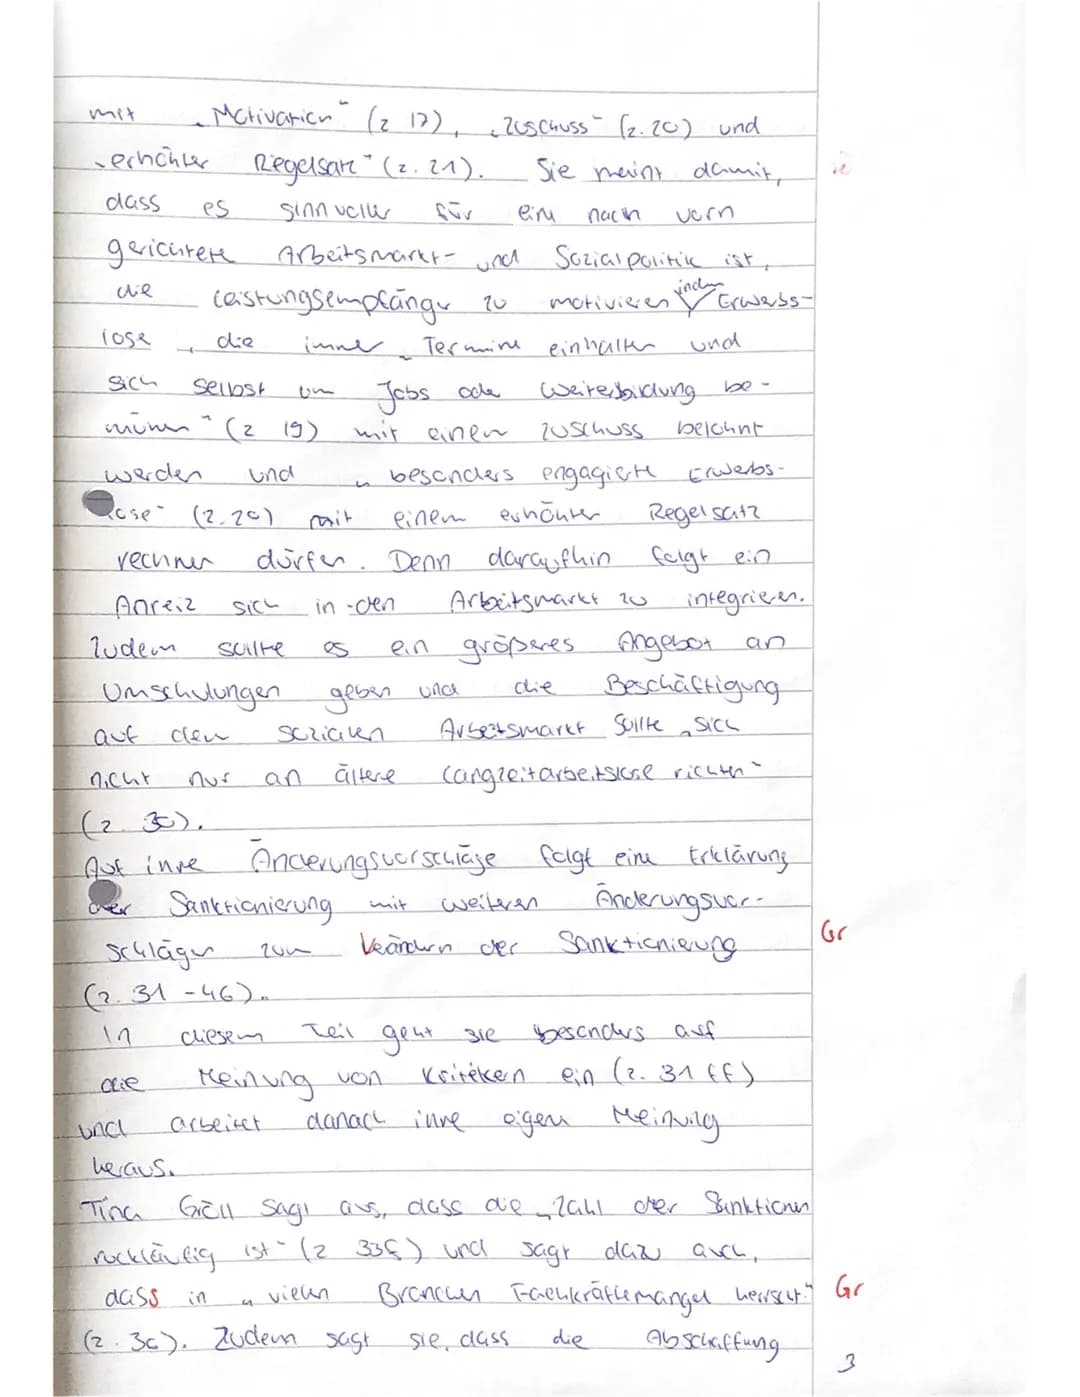 mit „Motivation“ (Z 17), „Zuschuss“ (Z. 20) und
„erhöhter Riegelsatz“ (Z. 21). Sie meint damit,
dass es sinnvoller für eine nach vorn
gerichtete Arbeitsmarkt- und Sozialpolitik ist,
die Leistungsempfänger zu motivieren indem Erwerbs-
lose, die immer „Termine einhalten und
sich selbst um Jobs oder Weiterbildung be-
mühen“ (Z 19) mit einem Zuschuss belohnt
werden und „besonders engagierte Erwerbs-
lose“ (Z. 20) mit einem erhöhter Regelsatz
rechnen dürfen. Denn daraufhin folgt ein
Anreiz sich in den Arbeitsmarkt zu integrieren.
Zudem sollte es ein größeres Angebot an
Umschulungen geben und die Beschäftigung
auf dem sozialen Arbeitsmarkt sollte „sich
nicht nur an ältere Langzeitarbeitslose richten“
(Z. 30).
Auf ihre Änderungsvorschläge folgt eine Erklärung
der Sanktionierung mit weiteren Änderungsvor-
schlägen zum Verändern der Sanktionierung
Gr
(Z. 31-46).
In diesem Teil geht sie besonders auf
die Meinung von Kritiken ein (Z. 31 ff)
und arbeitet danach ihre eigene Meinung
heraus.
Tina Groll sagt aus, dass die „Zahl der Sanktionen
rückläufig ist“ (Z 33f) und sagt dazu auch,
dass in „vielen Branchen Fachkräftemangel herrscht.“
Gr
(Z. 36). Zudem sagt sie, dass die Abschaffung
3